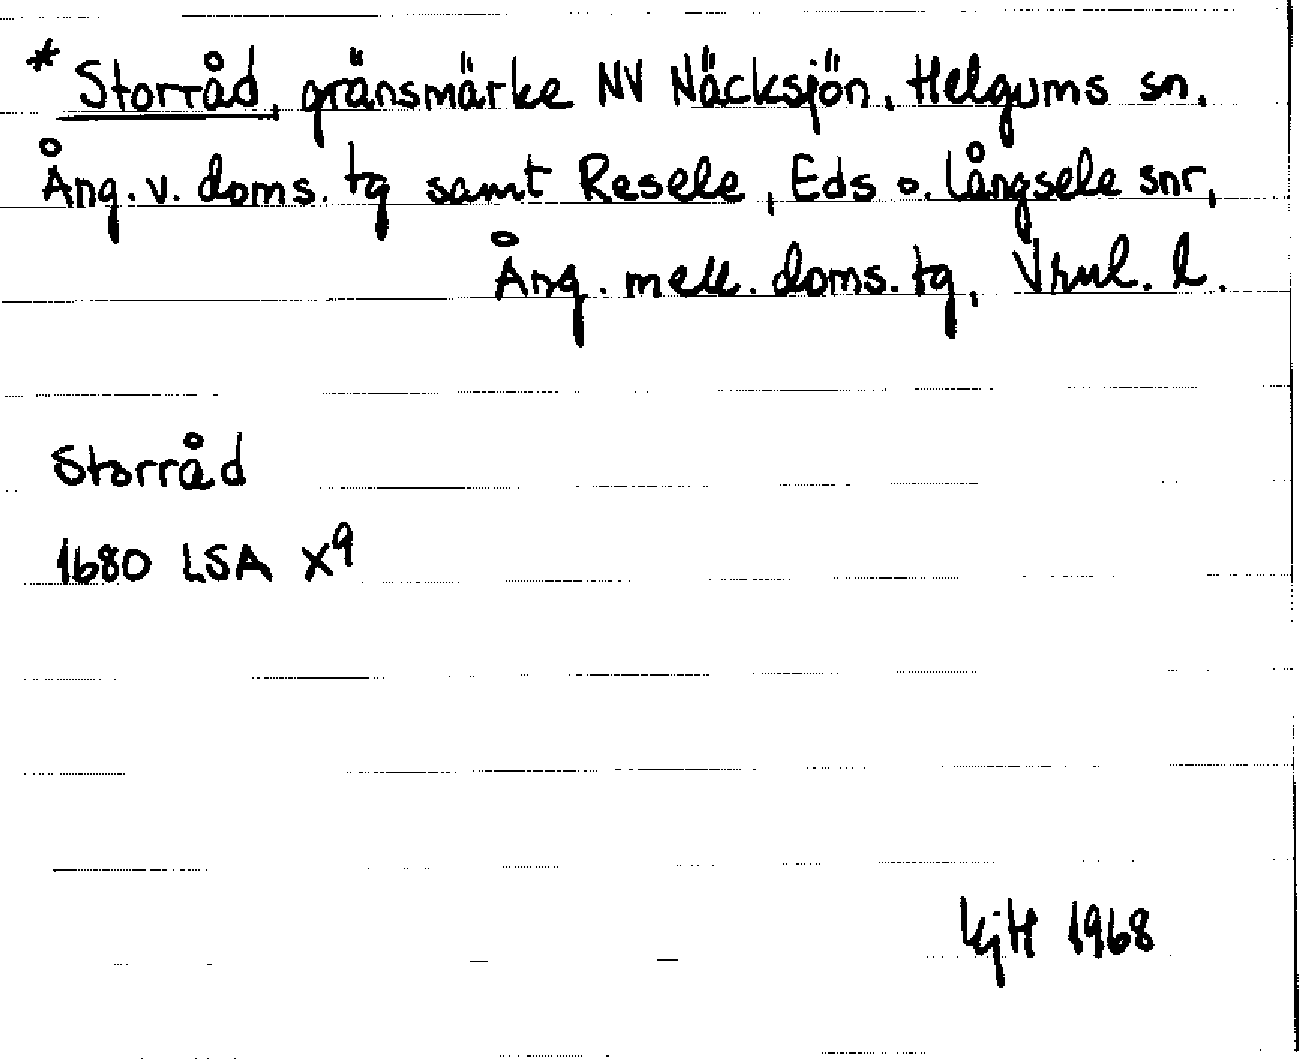 * Storråd, gränsmärke NV Näcksjön, Helgums sn.
Ång. v. doms. tg samt Resele, Eds o. Långsele snr,
Ång. mell. doms. tg, Vrnl. l.
Storråd
1680 LSA X9
KjH 1968